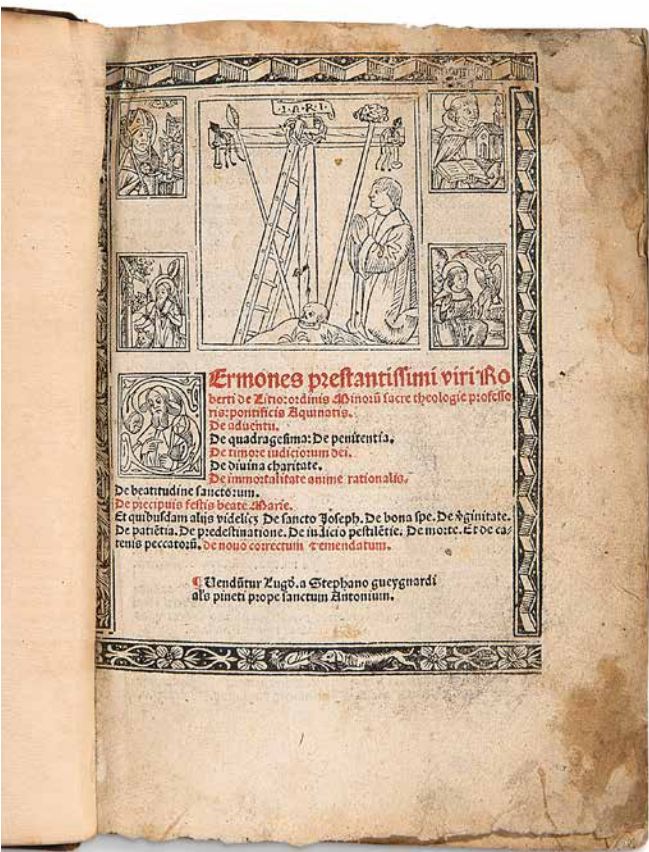 I.N.R.I.
Sermones prestantissimi viri Ro
berti de Litio: ordinis Minorū sacre theologie professo
ris: pontificis Aquinatis.
De aduentu.
De quadragesima: De penitentia.
De timore iudiciorum dei.
De diuina charitate.
De immortalitate anime rationalis.
De beatitudine sanctorum.
De precipuis festis beate Marie.
Et quibusdam alijs videlicꝫ De sancto Joseph. De bona spe. De v̄ginitate.
De patiētia. De predestinatione. De iudicio pestilētie. De morte. Et de ca-
tenis peccatorū. de nouo correctum ⁊ emendatum.
¶ Vendūtur Lugd̄. a Stephano gueygnardi
al's pineti prope sanctum Antonium.